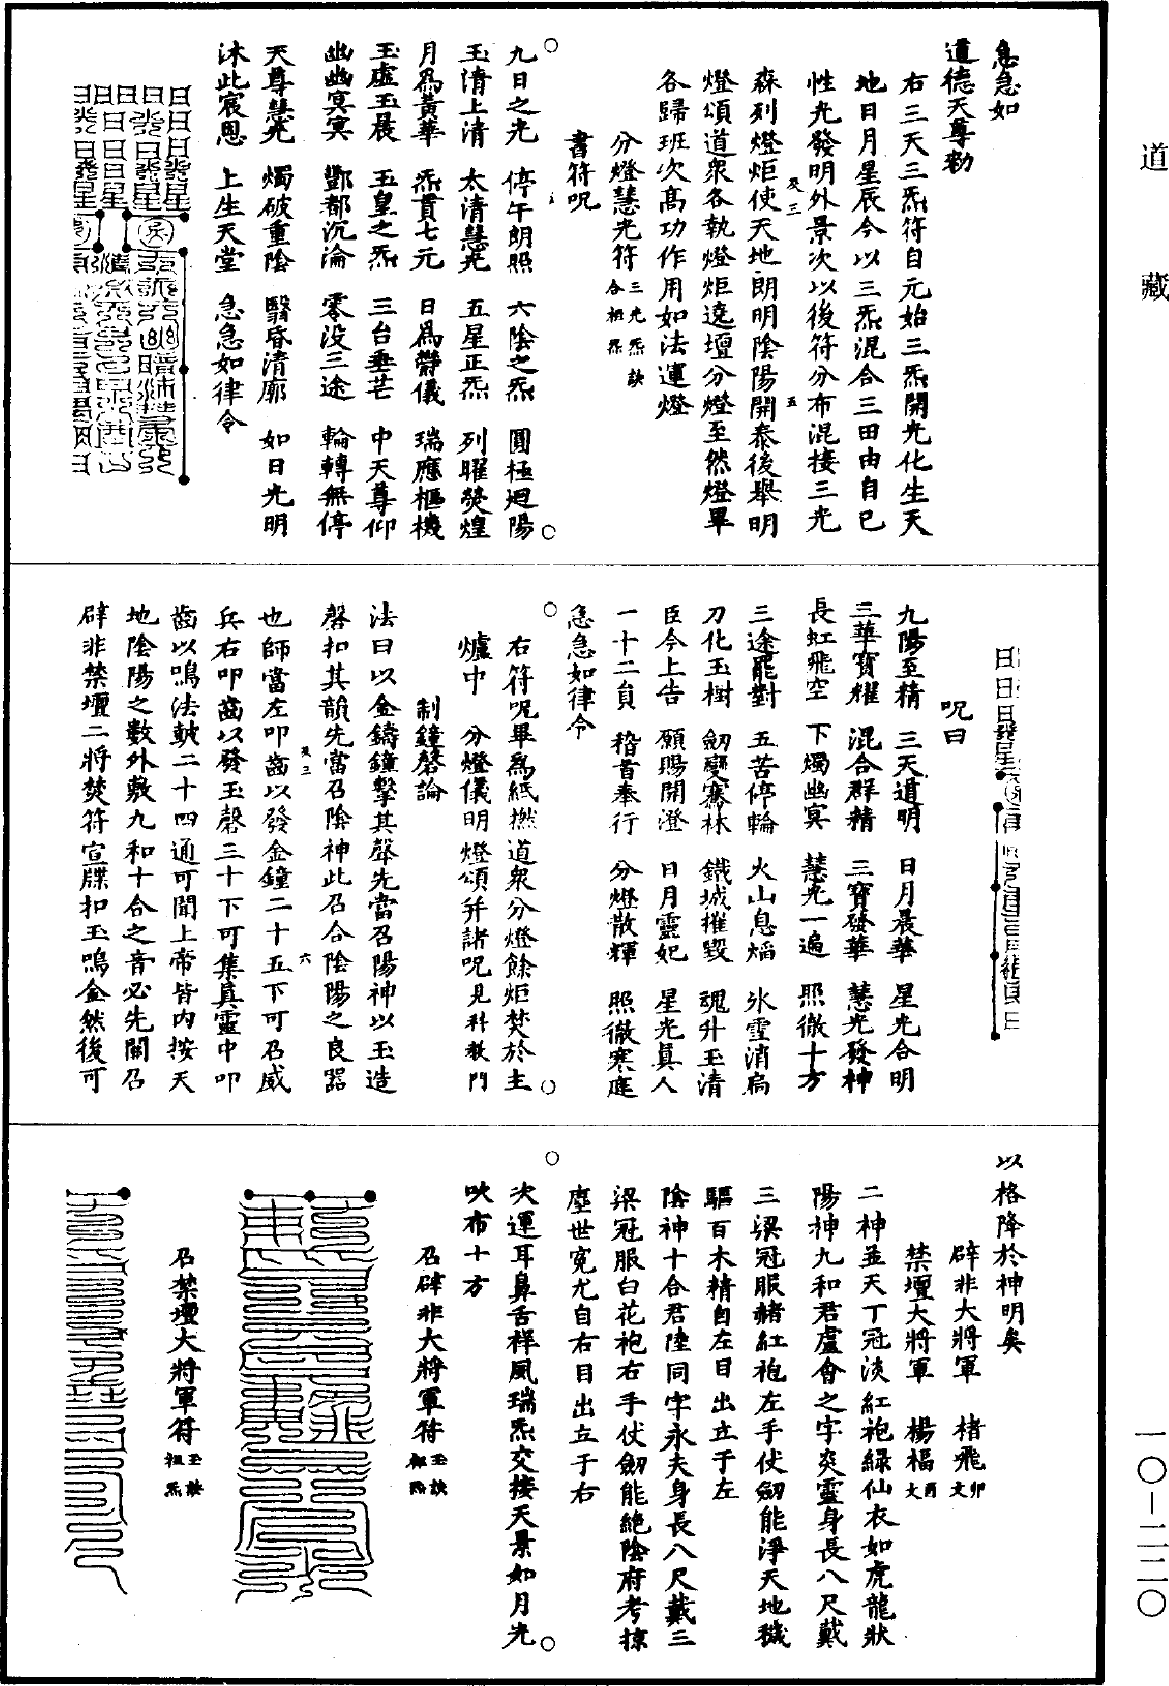 道藏
急急如
道德天尊勑
右三天三炁符自元始三炁開光化生天
地日月星辰今以三炁混合三田由自己
性光發明外景次以後符分布混接三光
森列燈炬使天地朗明陰陽開泰後舉明
燈頌道衆各執燈炬遶壇分燈至然燈畢
各歸班次高功作用如法運燈
分燈慧光符 三光炁訣 合祖炁
書符呪
九日之光 停午朗照 六陰之炁 圓極迴陽
玉清上清 太清慧光 五星正炁 列曜熒煌
月爲黃華 炁貫七元 日爲欝儀 瑞應樞機
玉虛玉晨 五皇之炁 三台垂芒 中天尊仰
幽幽冥冥 酆都沉淪 零没三途 輪轉無停
天尊慧光 燭破重陰 翳昏清廓 如日光明
沐此宸恩 上生天堂 急急如律令
呪曰
九陽至精 三天道明 日月晨華 星光合明
三華寶耀 混合群精 三寶發華 慧光發神
長虹飛空 下燭幽冥 慧光一遍 照徹十方
三途罷對 五苦停輪 火山息焰 氷雪消扃
刀化玉樹 劒變騫林 鐵城摧毀 魂升玉清
臣今上告 願賜開澄 日月靈妃 星光真人
一十二員 稽首奉行 分燈散輝 照徹寒庭
急急如律令
右符呪畢爲紙撚道衆分燈餘炬焚於主
爐中 分燈儀明燈頌并諸呪見科教門
制鐘磬論
法曰以金鑄鐘擊其聲先當召陽神以玉造
磬扣其韻先當召陰神此召合陰陽之良器
也師當左叩齒以發金鐘二十五下可召威
兵右叩齒以發玉磬三十下可集真靈中叩
齒以鳴法鼓二十四通可聞上帝皆内按天
地陰陽之數外敷九和十合之音必先關召
辟非禁壇二將焚符宣牒扣玉鳴金然後可
以格降於神明矣
辟非大將軍 楮飛 卯文
禁壇大將軍 楊福 酉文
二神並天丁冠淡紅袍緑仙衣如虎龍狀
陽神九和君盧會之字爽靈身長八尺戴
三梁冠服赭紅袍左手仗劒能淨天地穢
驅百木精自左目出立于左
陰神十合君陸同字永夫身長八尺戴三
梁冠服白花袍右手仗劒能絶陰府考掠
塵世寃尤自右目出立于右
次運耳鼻舌祥風瑞炁交接天景如月光
吹布十方
召辟非大將軍符 玉訣 祖炁
召禁壇大將軍符 玉訣 祖炁
一〇－二二〇